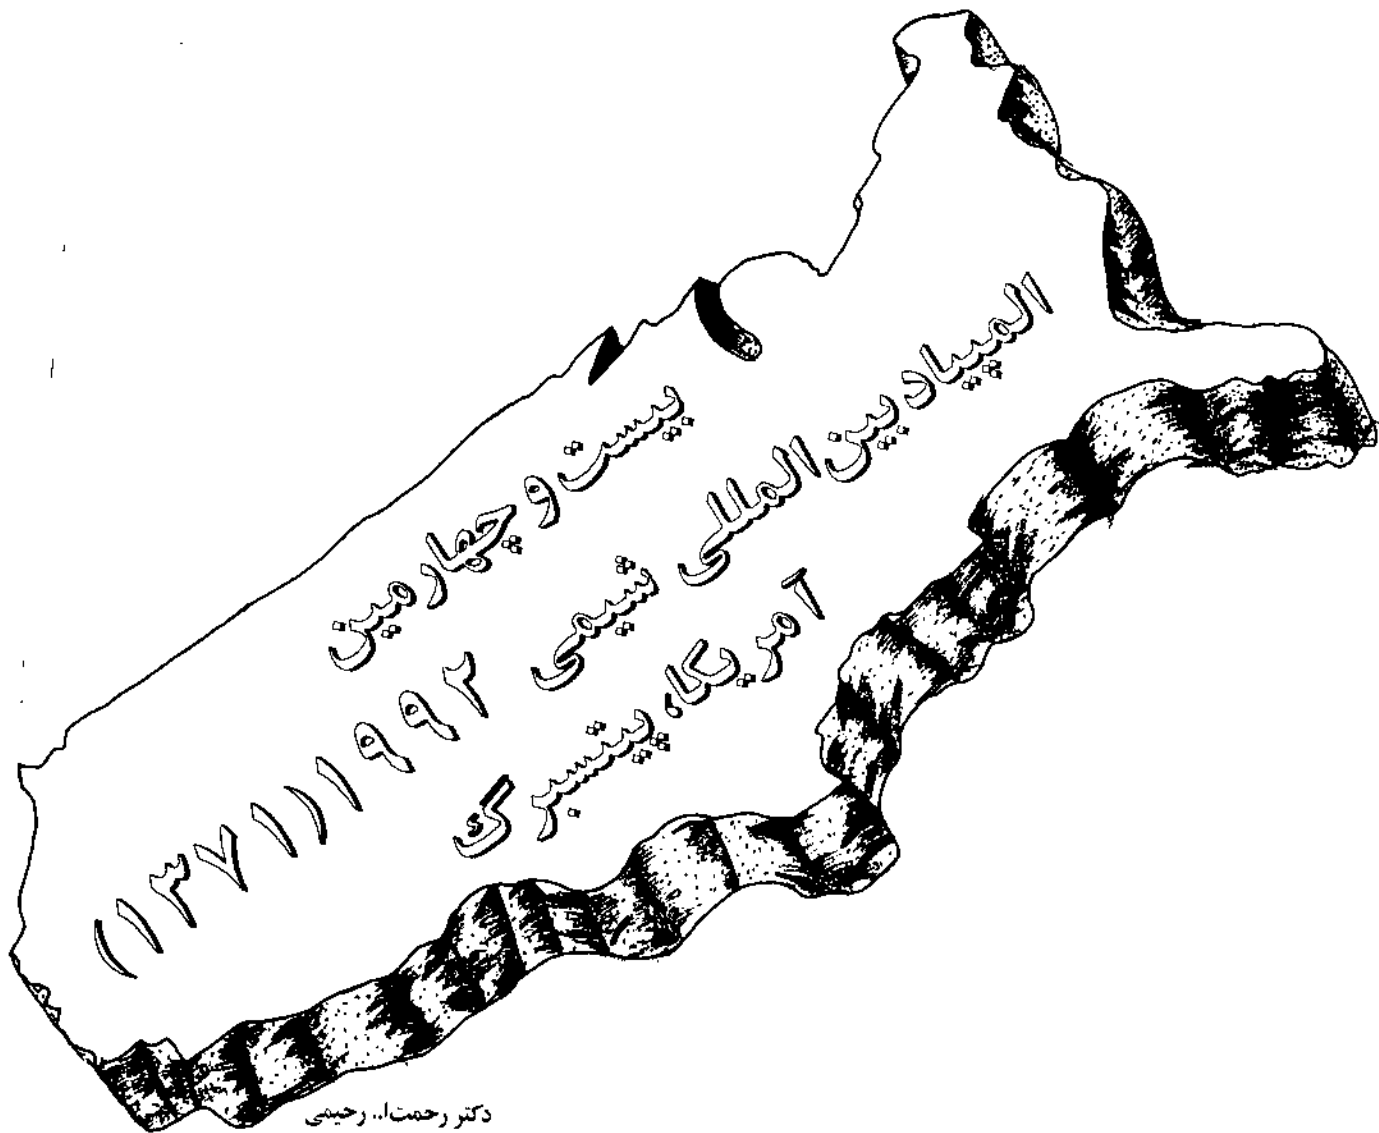 بیست و چهارمین
المپیاد بین المللی شیمی ۱۹۹۲ (۱۳۷۱)
آمریکا، پیتسبرگ
دکتر رحمت‌ا.. رحیمی